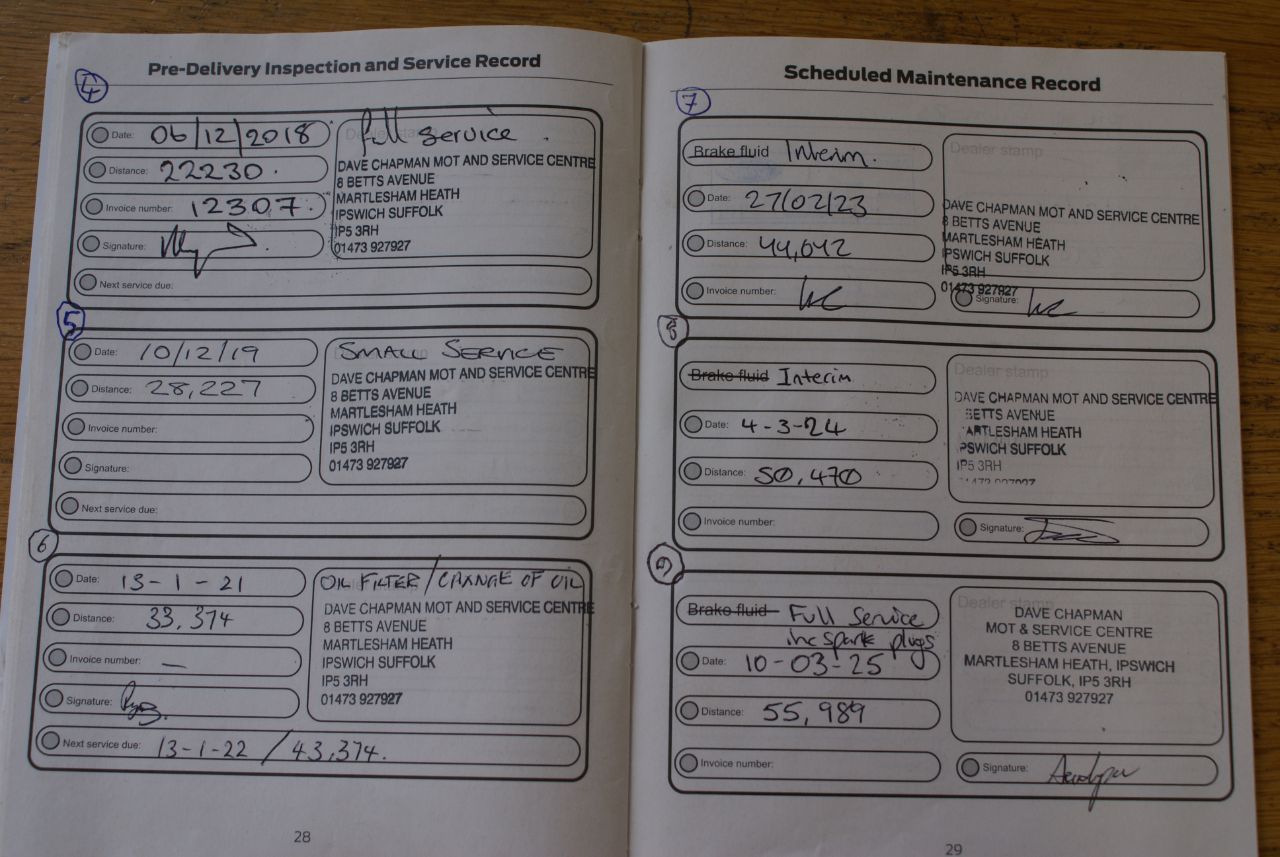 Pre-Delivery Inspection and Service Record
4
Date: 06/12/2018
Full Service.
Distance: 22230.
Invoice number: 12307.
Signature:
Next service due:
DAVE CHAPMAN MOT AND SERVICE CENTRE
8 BETTS AVENUE
MARTLESHAM HEATH
IPSWICH SUFFOLK
IP5 3RH
01473 927927
5
Date: 10/12/19
SMALL SERVICE
Distance: 28,227
Invoice number:
Signature:
Next service due:
DAVE CHAPMAN MOT AND SERVICE CENTRE
8 BETTS AVENUE
MARTLESHAM HEATH
IPSWICH SUFFOLK
IP5 3RH
01473 927927
6
Date: 13-1-21
OIL FILTER/CHANGE OF OIL
Distance: 33,374
Invoice number: —
Signature:
DAVE CHAPMAN MOT AND SERVICE CENTRE
8 BETTS AVENUE
MARTLESHAM HEATH
IPSWICH SUFFOLK
IP5 3RH
01473 927927
Next service due: 13-1-22 / 43,374.
28
Scheduled Maintenance Record
7
Brake fluid Interim.
Date: 27/02/23
Distance: 44,042
Invoice number:
Dealer stamp
DAVE CHAPMAN MOT AND SERVICE CENTRE
8 BETTS AVENUE
MARTLESHAM HEATH
IPSWICH SUFFOLK
IP5 3RH
01473 927927
Signature:
8
Brake fluid Interim
Date: 4-3-24
Distance: 50,470
Invoice number:
Dealer stamp
DAVE CHAPMAN MOT AND SERVICE CENTRE
BETTS AVENUE
ARTLESHAM HEATH
PSWICH SUFFOLK
IP5 3RH
Signature:
9
Brake fluid Full Service
inc spark plugs
Date: 10-03-25
Distance: 55,989
Invoice number:
Dealer stamp
DAVE CHAPMAN
MOT & SERVICE CENTRE
8 BETTS AVENUE
MARTLESHAM HEATH, IPSWICH
SUFFOLK, IP5 3RH
01473 927927
Signature:
29